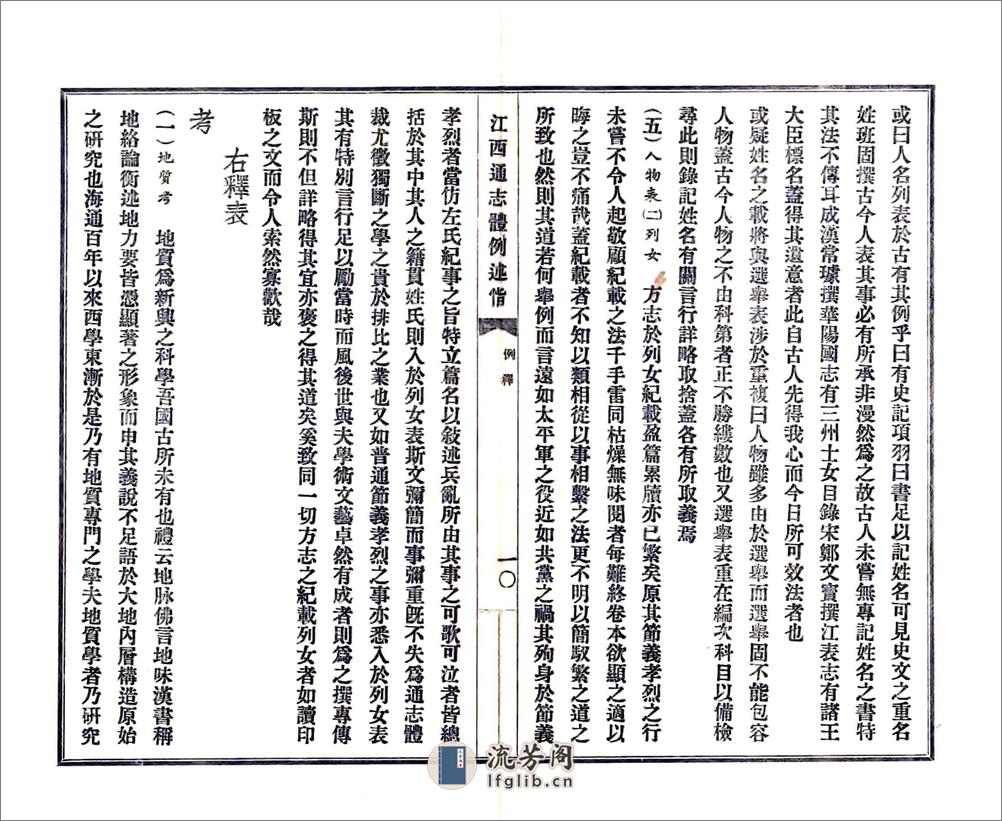 或曰人名列表於古有其例乎曰有史記項羽曰書足以記姓名可見史文之重名
姓班固撰古今人表其事必有所承非漫然爲之故古人未嘗無專記姓名之書特
其法不傳耳成漢常璩撰華陽國志有三州士女目錄宋鄭文寶撰江表志有諸王
大臣標名蓋得其遺意者此自古人先得我心而今日所可效法者也
或疑姓名之載將與選舉表涉於重複曰人物雖多由於選舉而選舉固不能包容
人物蓋古今人物之不由科第者正不勝縷數也又選舉表重在編次科目以備檢
尋此則錄記姓名有關言行詳略取捨蓋各有所取義焉
(五)人物表(二)列女 方志於列女紀載盈篇累牘亦已繁矣原其節義孝烈之行
未嘗不令人起敬顧紀載之法千手雷同枯燥無味閱者每難終卷本欲顯之適以
晦之豈不痛哉蓋紀載者不知以類相從以事相繫之法更不明以簡馭繁之道之
所致也然則其道若何舉例而言遠如太平軍之役近如共黨之禍其殉身於節義
江西通志體例述恉
例釋
一〇
孝烈者當仿左氏紀事之旨特立篇名以敍述兵亂所由其事之可歌可泣者皆總
括於其中其人之籍貫姓氏則入於列女表斯文彌簡而事彌重旣不失爲通志體
裁尤徵獨斷之學之貴於排比之業也又如普通節義孝烈之事亦悉入於列女表
其有特別言行足以勵當時而風後世與夫學術文藝卓然有成者則爲之撰專傳
斯則不但詳略得其宜亦褒之得其道矣奚致同一切方志之紀載列女者如讀印
板之文而令人索然寡歡哉
右釋表
考
(一)地質考 地質爲新興之科學吾國古所未有也禮云地脉佛言地味漢書稱
地絡論衡述地力要皆憑顯著之形象而申其義說不足語於大地內層構造原始
之研究也海通百年以來西學東漸於是乃有地質專門之學夫地質學者乃研究
流芳阁
lfglib.cn